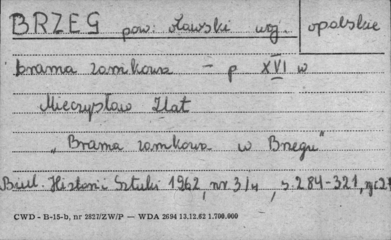 BRZEG pow. oławski woj. opolskie
brama zamkowa - p XVI w
Mieczysław Zlat
„Brama zamkowa w Brzegu"
Biul. Historii Sztuki 1962, nr. 3/4, s. 284-321,
CWD - B-15-b, nr 2827/ZW/P — WDA 2694 13.12.62 1.700.000